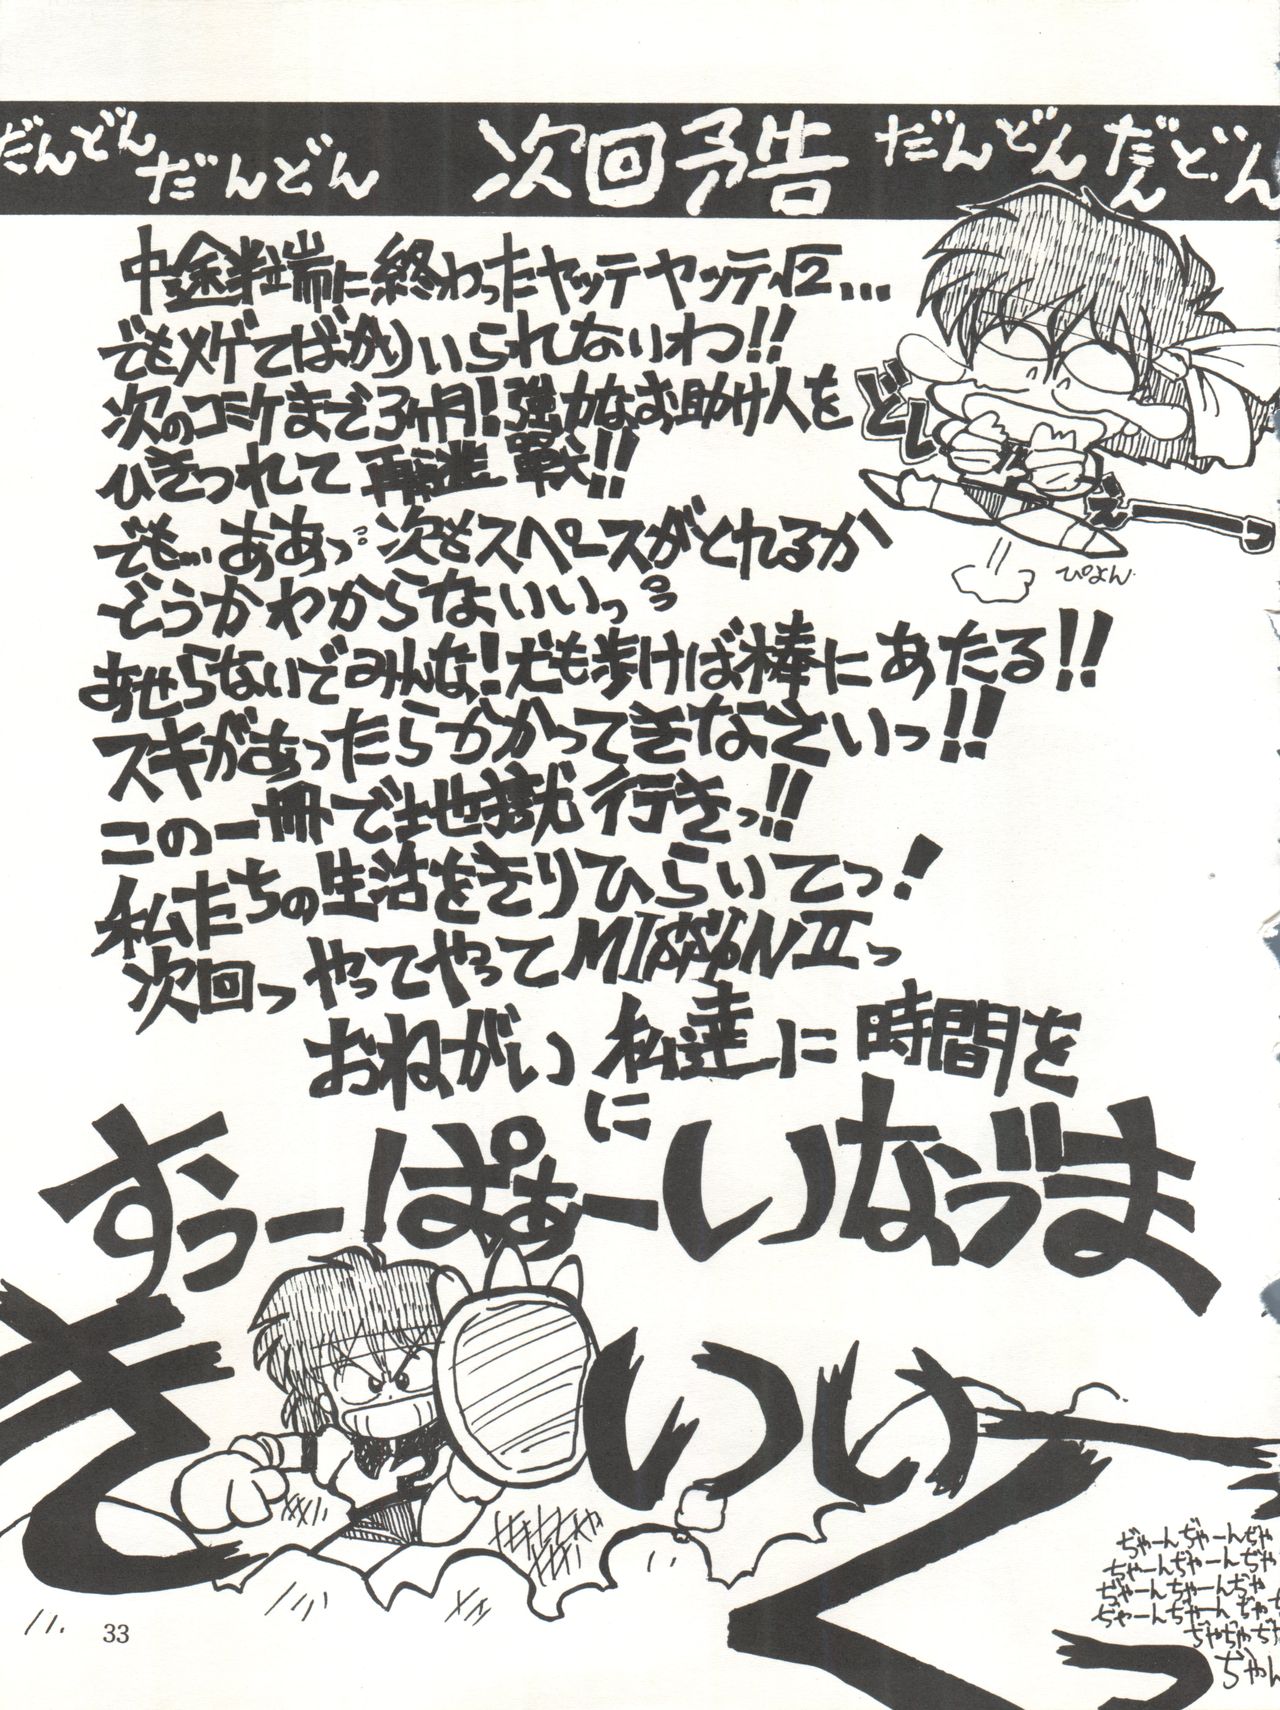 だんどん だんどん 次回予告 だんどん だんどん
中途半端に終わったヤッテヤッテ√2...
でもメゲてばかりいられないわ!!
次のコミケまで3ヶ月!強力なお助け人を
ひきつれて再進撃!!
でも...ああっ次もスペースがとれるか
どうかわからないいっ
あせらないでみんな!犬も歩けば棒にあたる!!
スキがあったらかかってきなさいっ!!
この一冊で地獄行きっ!!
私たちの生活をきりひらいてっ!
次回っやってやってMISSIONⅡっ
おねがい私達に時間を
に
すぅーぱぁーいなづま
きいっいい
くっ
どし
え
え
ぴよん
ぢゃーんぢゃーんぢゃ
ちゃーんちゃーんぢゃ
ぢゃーんちゃーんぢゃ
ぢゃーんちゃーんぢゃ
ぢゃぢゃぢ
ぢゃん
11.
33